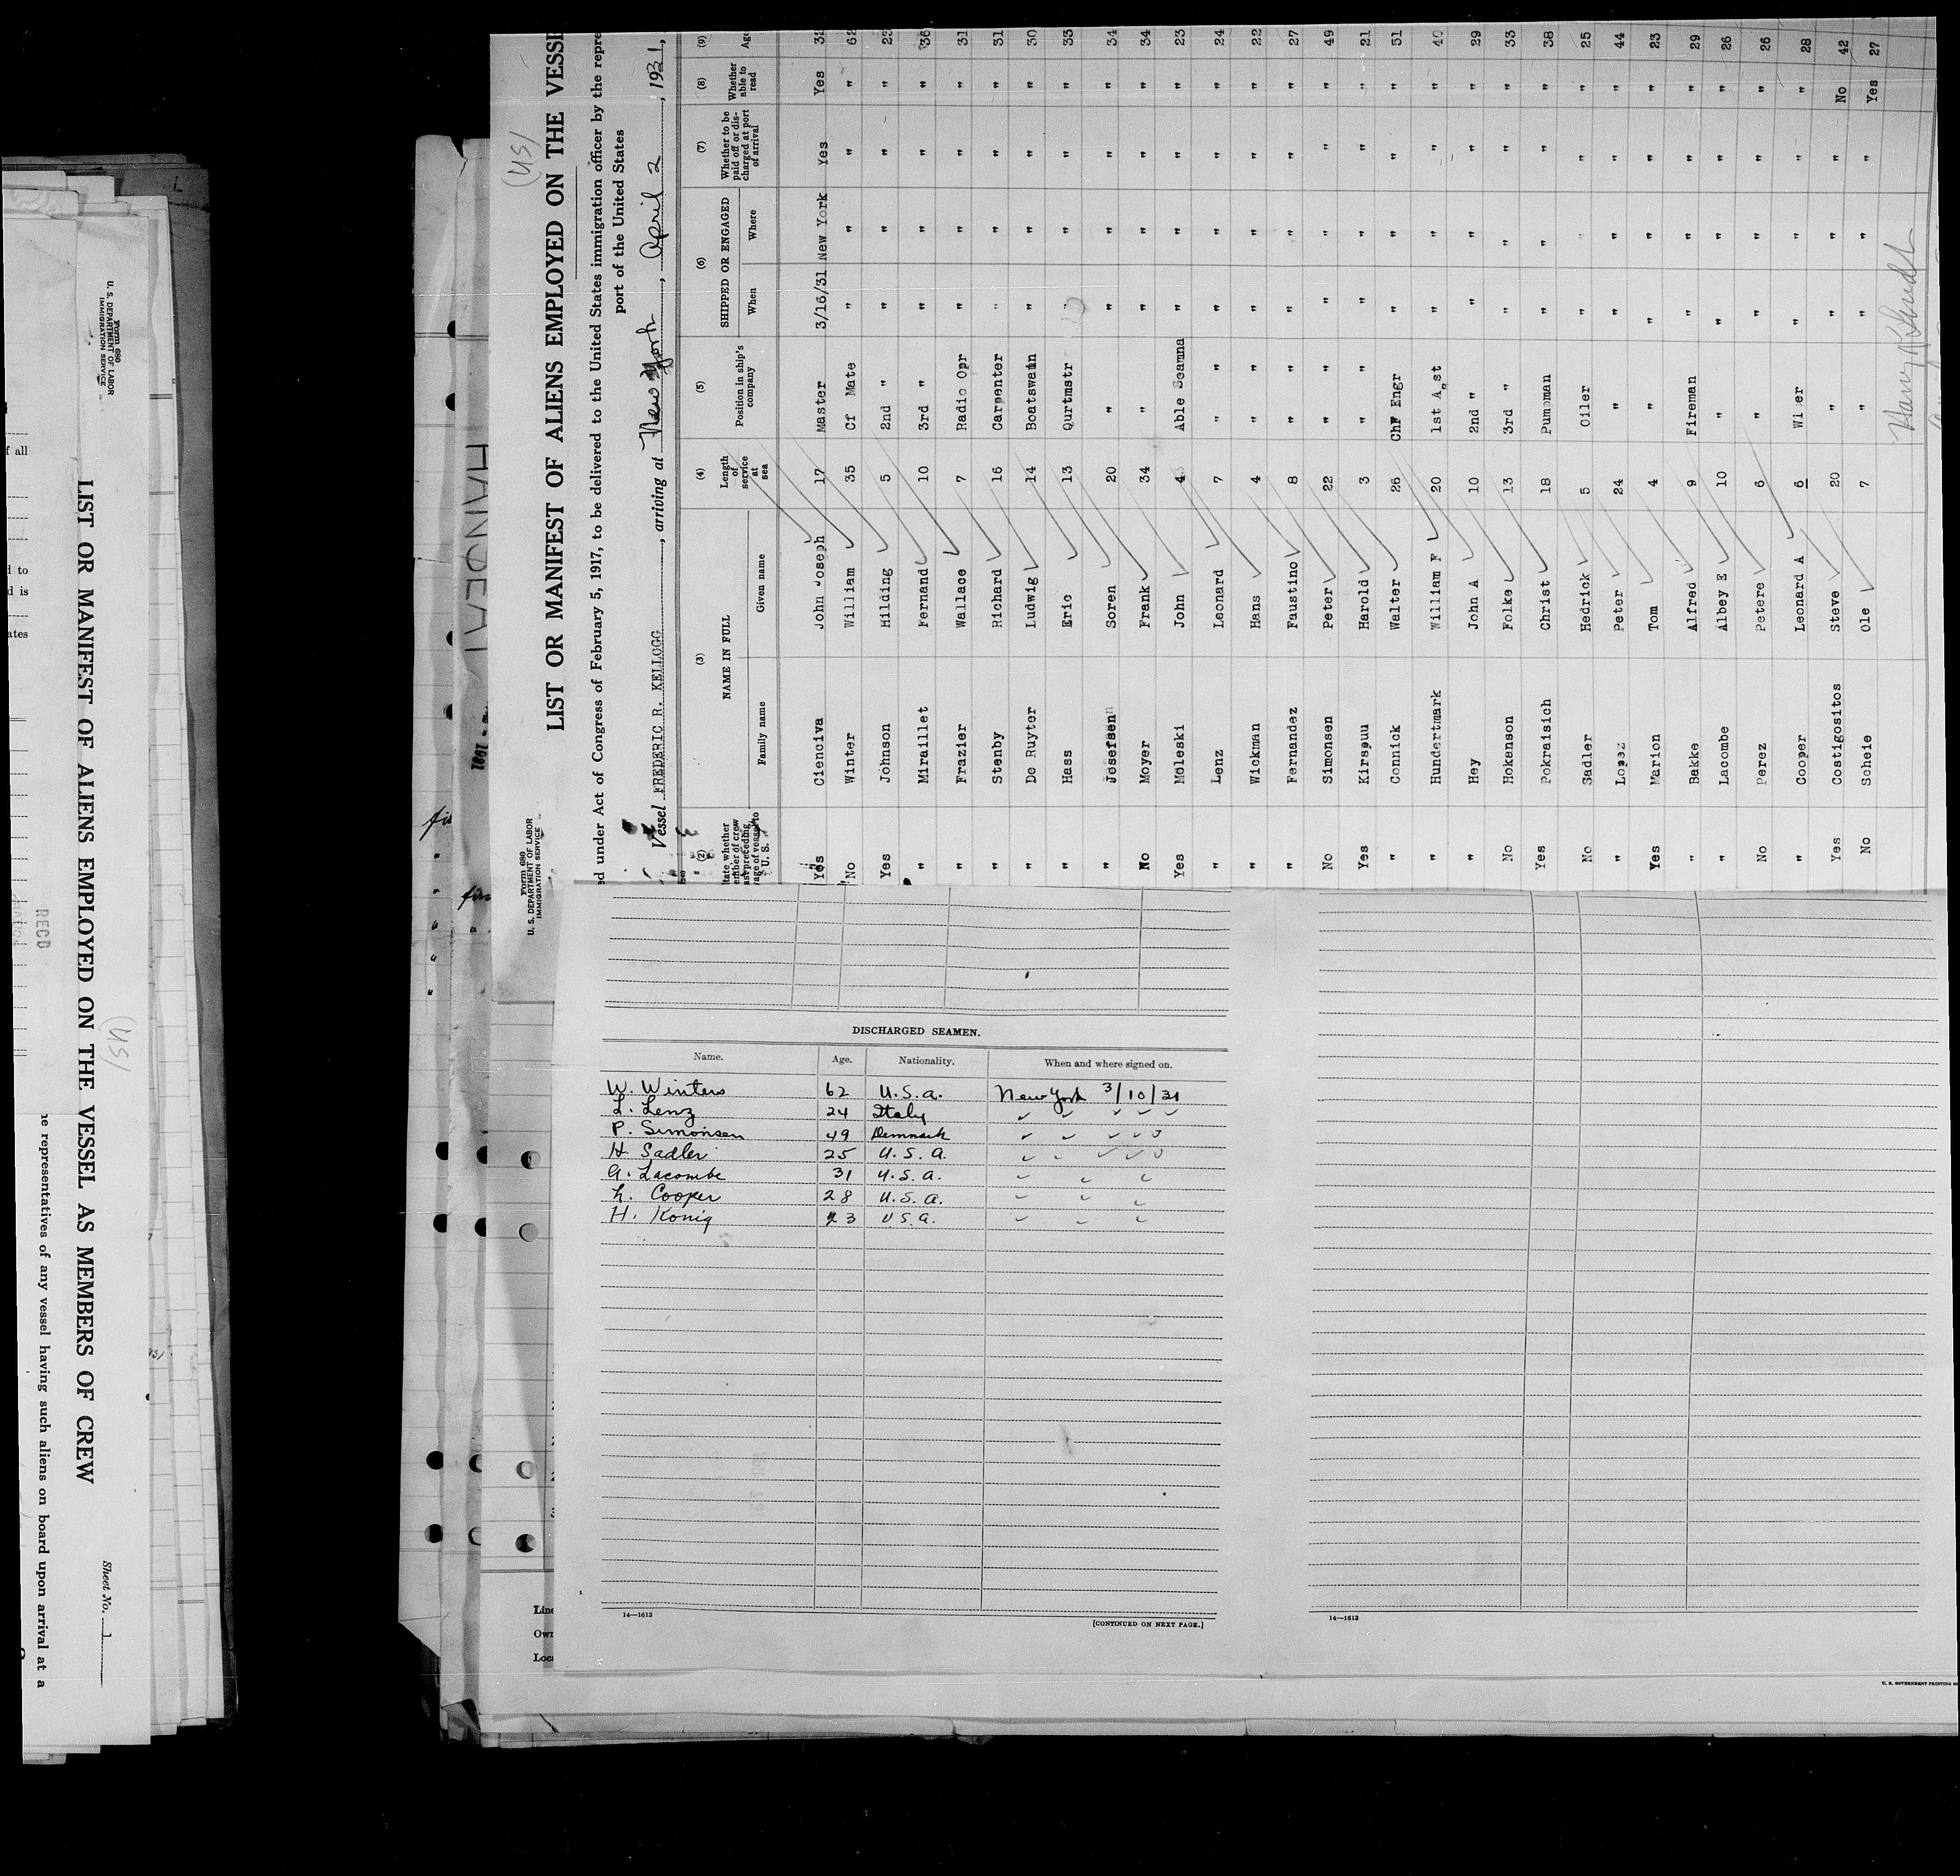 Form 680
U. S. DEPARTMENT OF LABOR
IMMIGRATION SERVICE
(US)
LIST OR MANIFEST OF ALIENS EMPLOYED ON THE VESSEL AS MEMBERS OF CREW
Sheet No. 1
representatives of any vessel having such aliens on board upon arrival at a
RECD
f all
d to
d is
ates
Form 680
U. S. DEPARTMENT OF LABOR
IMMIGRATION SERVICE
(US)
LIST OR MANIFEST OF ALIENS EMPLOYED ON THE VESSE
ed under Act of Congress of February 5, 1917, to be delivered to the United States immigration officer by the repre
port of the United States
Vessel FREDERIC R. KELLOGG, arriving at New York, April 2, 1931,
(2) (3) (4) (5) (6) (7) (8) (9)
NAME IN FULL Family name Given name Length of service at sea Position in ship's company SHIPPED OR ENGAGED When Where Whether to be paid off or discharged at port of arrival Whether able to read Age
Yes Cienciva John Joseph 17 Master 3/16/31 New York Yes Yes 32
No Winter William 35 Cf Mate " " " " 62
Yes Johnson Hilding 5 2nd " " " " " 23
" Miraillet Fernand 10 3rd " " " " " 36
" Frazier Wallace 7 Radio Opr " " " " 31
" Stenby Richard 16 Carpenter " " " " 31
" De Ruyter Ludwig 14 Boatswain " " " " 30
" Hass Eric 13 Qurtmstr " " " " 33
" Josefsen Soren 20 " " " " " 34
No Moyer Frank 34 " " " " " 34
Yes Moleski John 4 Able Seamna " " " " 23
" Lenz Leonard 7 " " " " " 24
" Wickman Hans 4 " " " " " 22
" Fernandez Faustino 8 " " " " " 27
No Simonsen Peter 22 " " " " " 49
Yes Kirspuu Harold 3 " " " " " 21
" Connick Walter 26 Chf Engr " " " " 51
" Hundertmark William F 20 1st Asst " " " " 40
" Hey John A 10 2nd " " " " " 29
No Hokanson Folke 13 3rd " " " " " 33
Yes Pokraisich Christ 18 Pumpman " " " " 38
No Sadler Hedrick 5 Oiler " " " " 25
" Lopez Peter 24 " " " " " 44
Yes Marion Tom 4 " " " " " 23
" Bakke Alfred 9 Fireman " " " " 29
" Lacombe Albey E 10 " " " " " 26
No Perez Petere 6 " " " " " 26
" Cooper Leonard A 6 Wiper " " " " 28
Yes Costigositos Steve 20 " " " " No 42
No Scheie Ole 7 " " " " Yes 27
DISCHARGED SEAMEN.
Name. Age. Nationality. When and where signed on.
W. Winters 62 U.S.A. New York 3/10/31
L. Lenz 24 Italy
P. Simonsen 49 Denmark
H. Sadler 25 U.S.A.
A. Lacombe 31 U.S.A.
L. Cooper 28 U.S.A.
H. Konig 23 U.S.A.
14—1613
[CONTINUED ON NEXT PAGE.]
14—1613
Line
Own
Loca